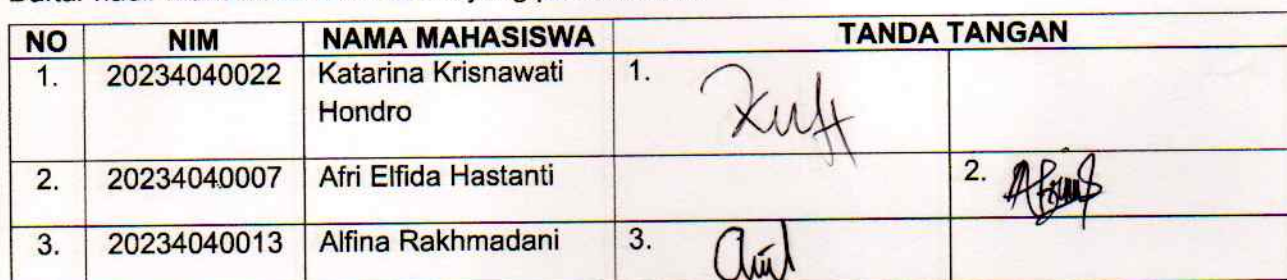 NO NIM NAMA MAHASISWA TANDA TANGAN
1. 20234040022 Katarina Krisnawati 1.
Hondro
2. 20234040007 Afri Elfida Hastanti 2.
3. 20234040013 Alfina Rakhmadani 3.